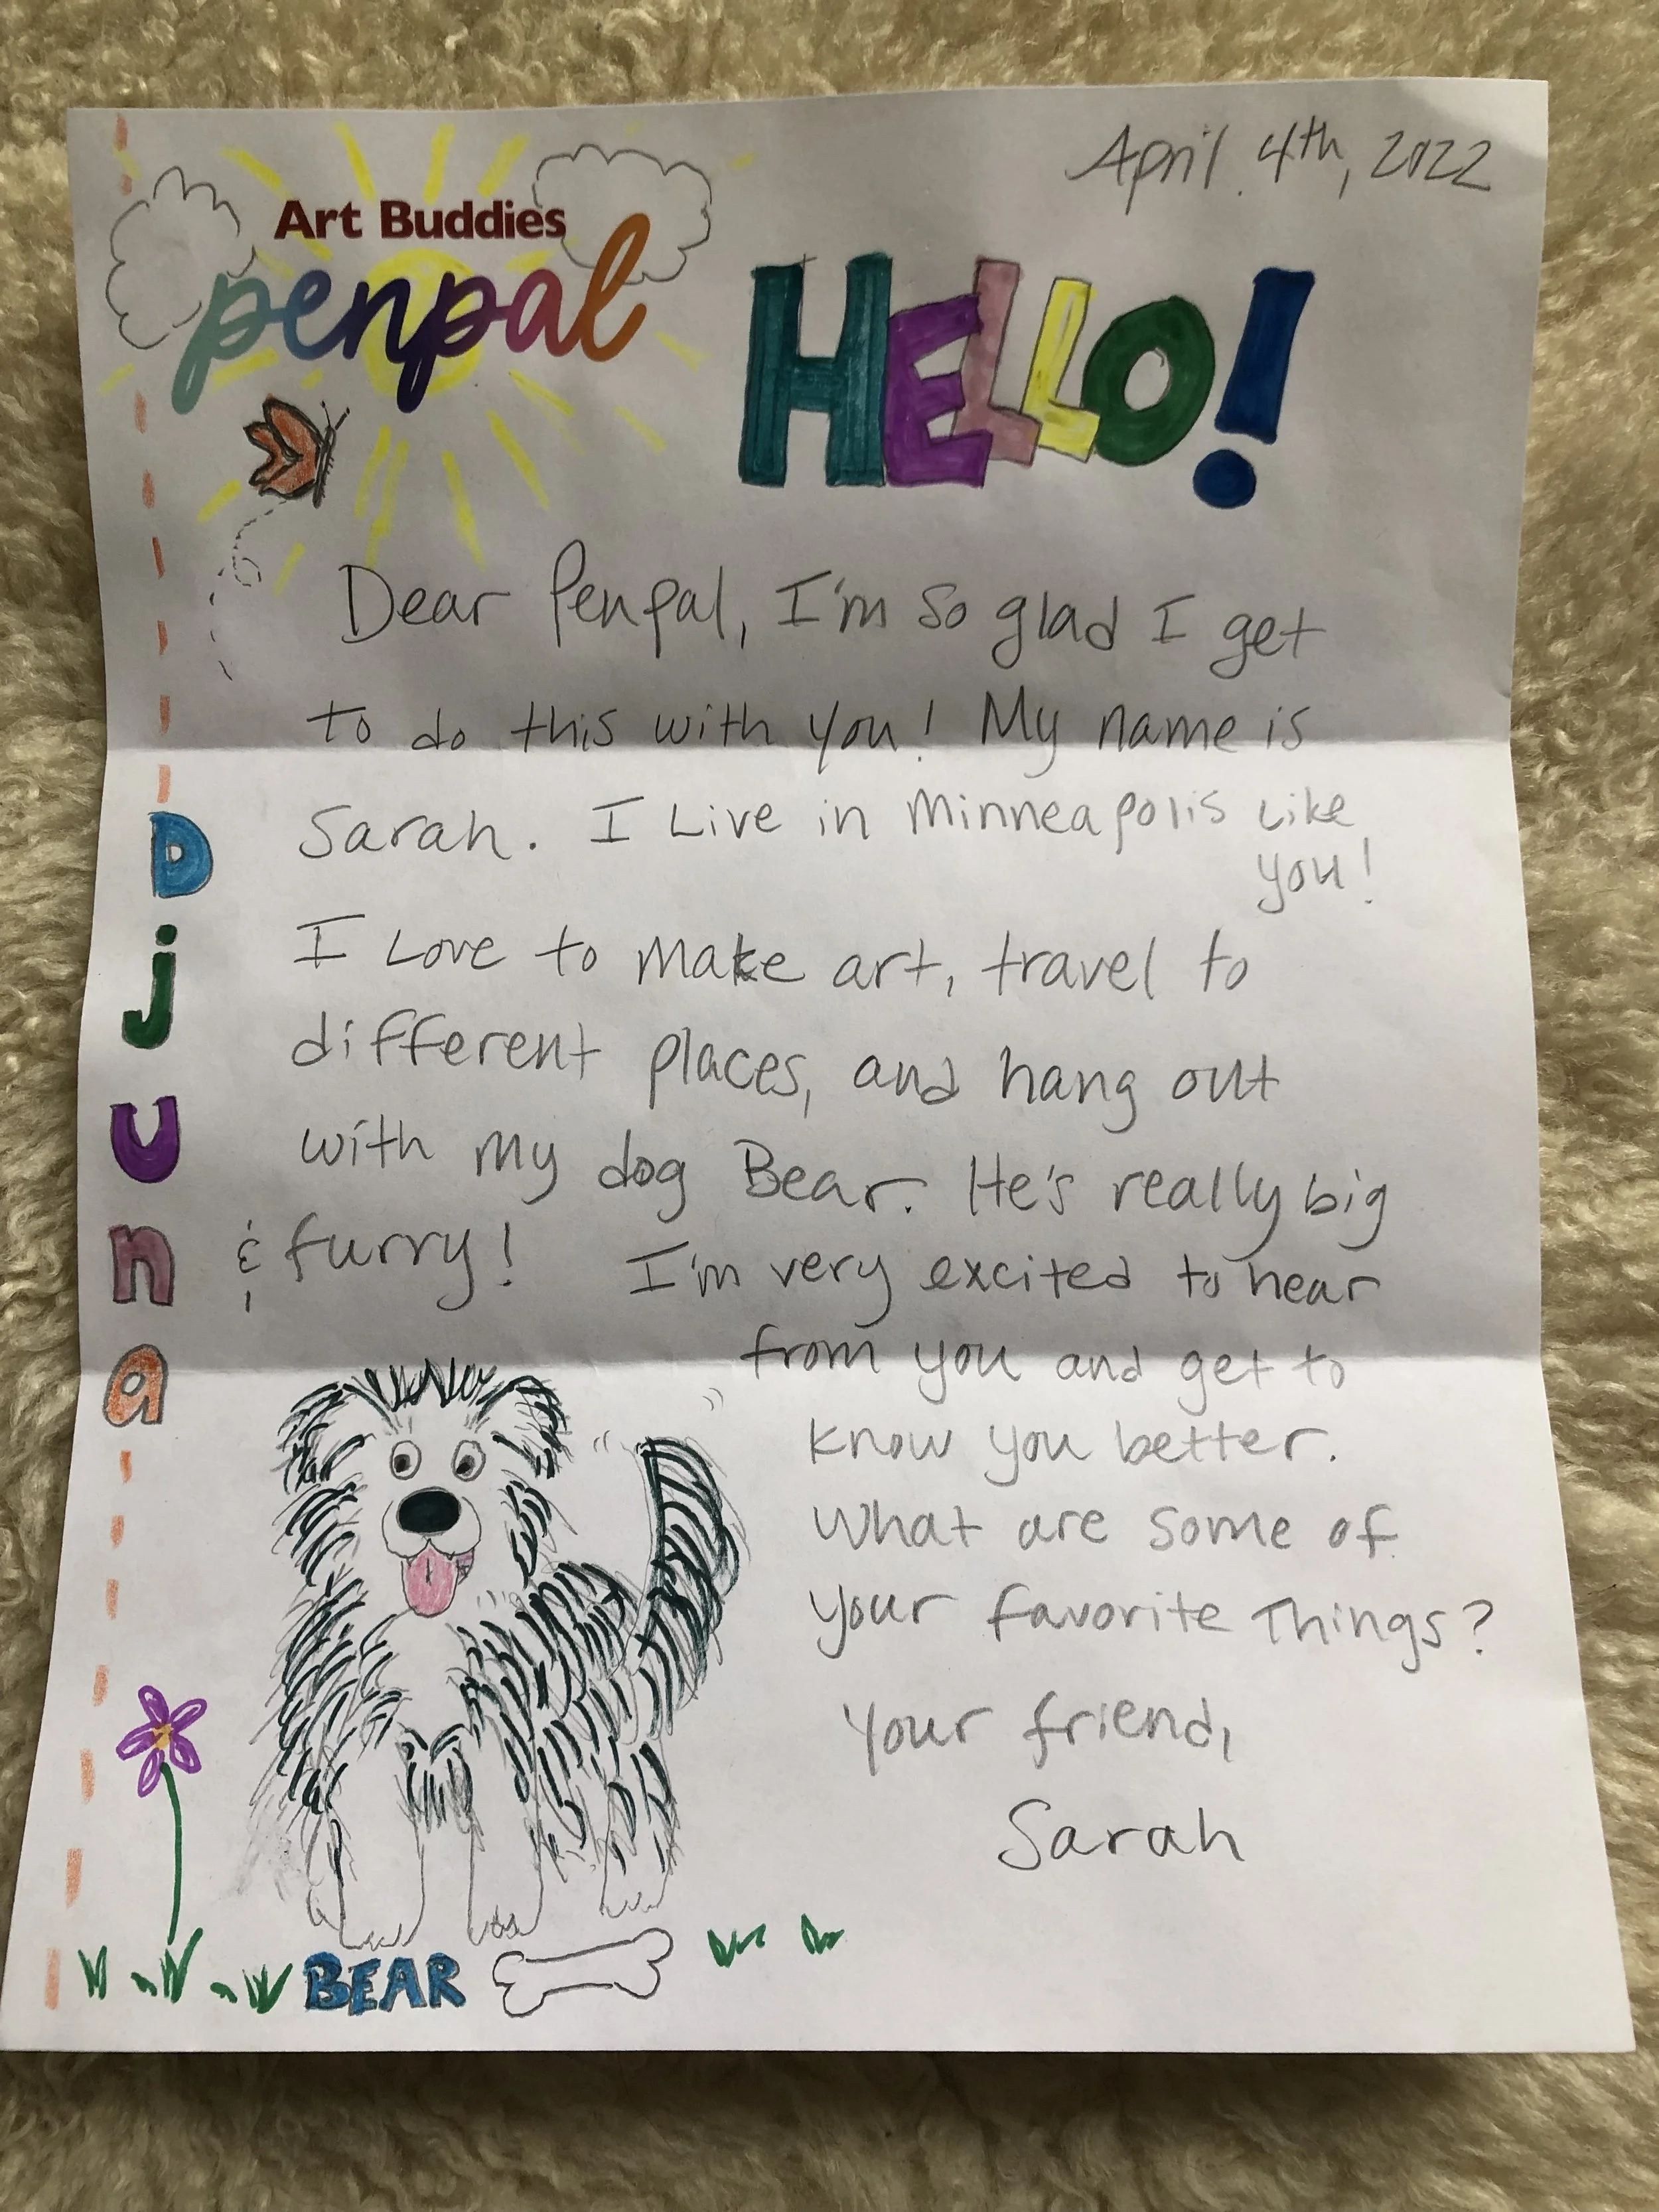 April 4th, 2022
Art Buddies
penpal
HELLO!
Dear Penpal, I'm so glad I get
to do this with you! My name is
Sarah. I Live in Minneapolis Like
you!
I Love to make art, travel to
different places, and hang out
with my dog Bear. He's really big
& furry! I'm very excited to hear
from you and get to
know you better.
What are some of
your favorite Things?
Your friend,
Sarah
Djuna
BEAR